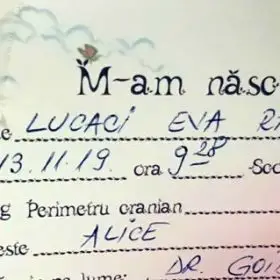 M-am născ
LUCACI EVA R
13.11.19. ora 9 28
g Perimetru cranian
este ALICE
lume: DR GO